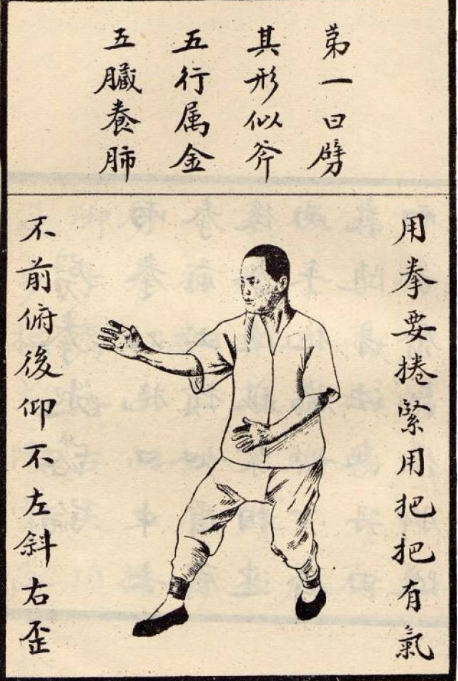 第一曰劈
其形似斧
五行属金
五臓養肺
用拳要捲緊用把把有氣
不前俯後仰不左斜右歪